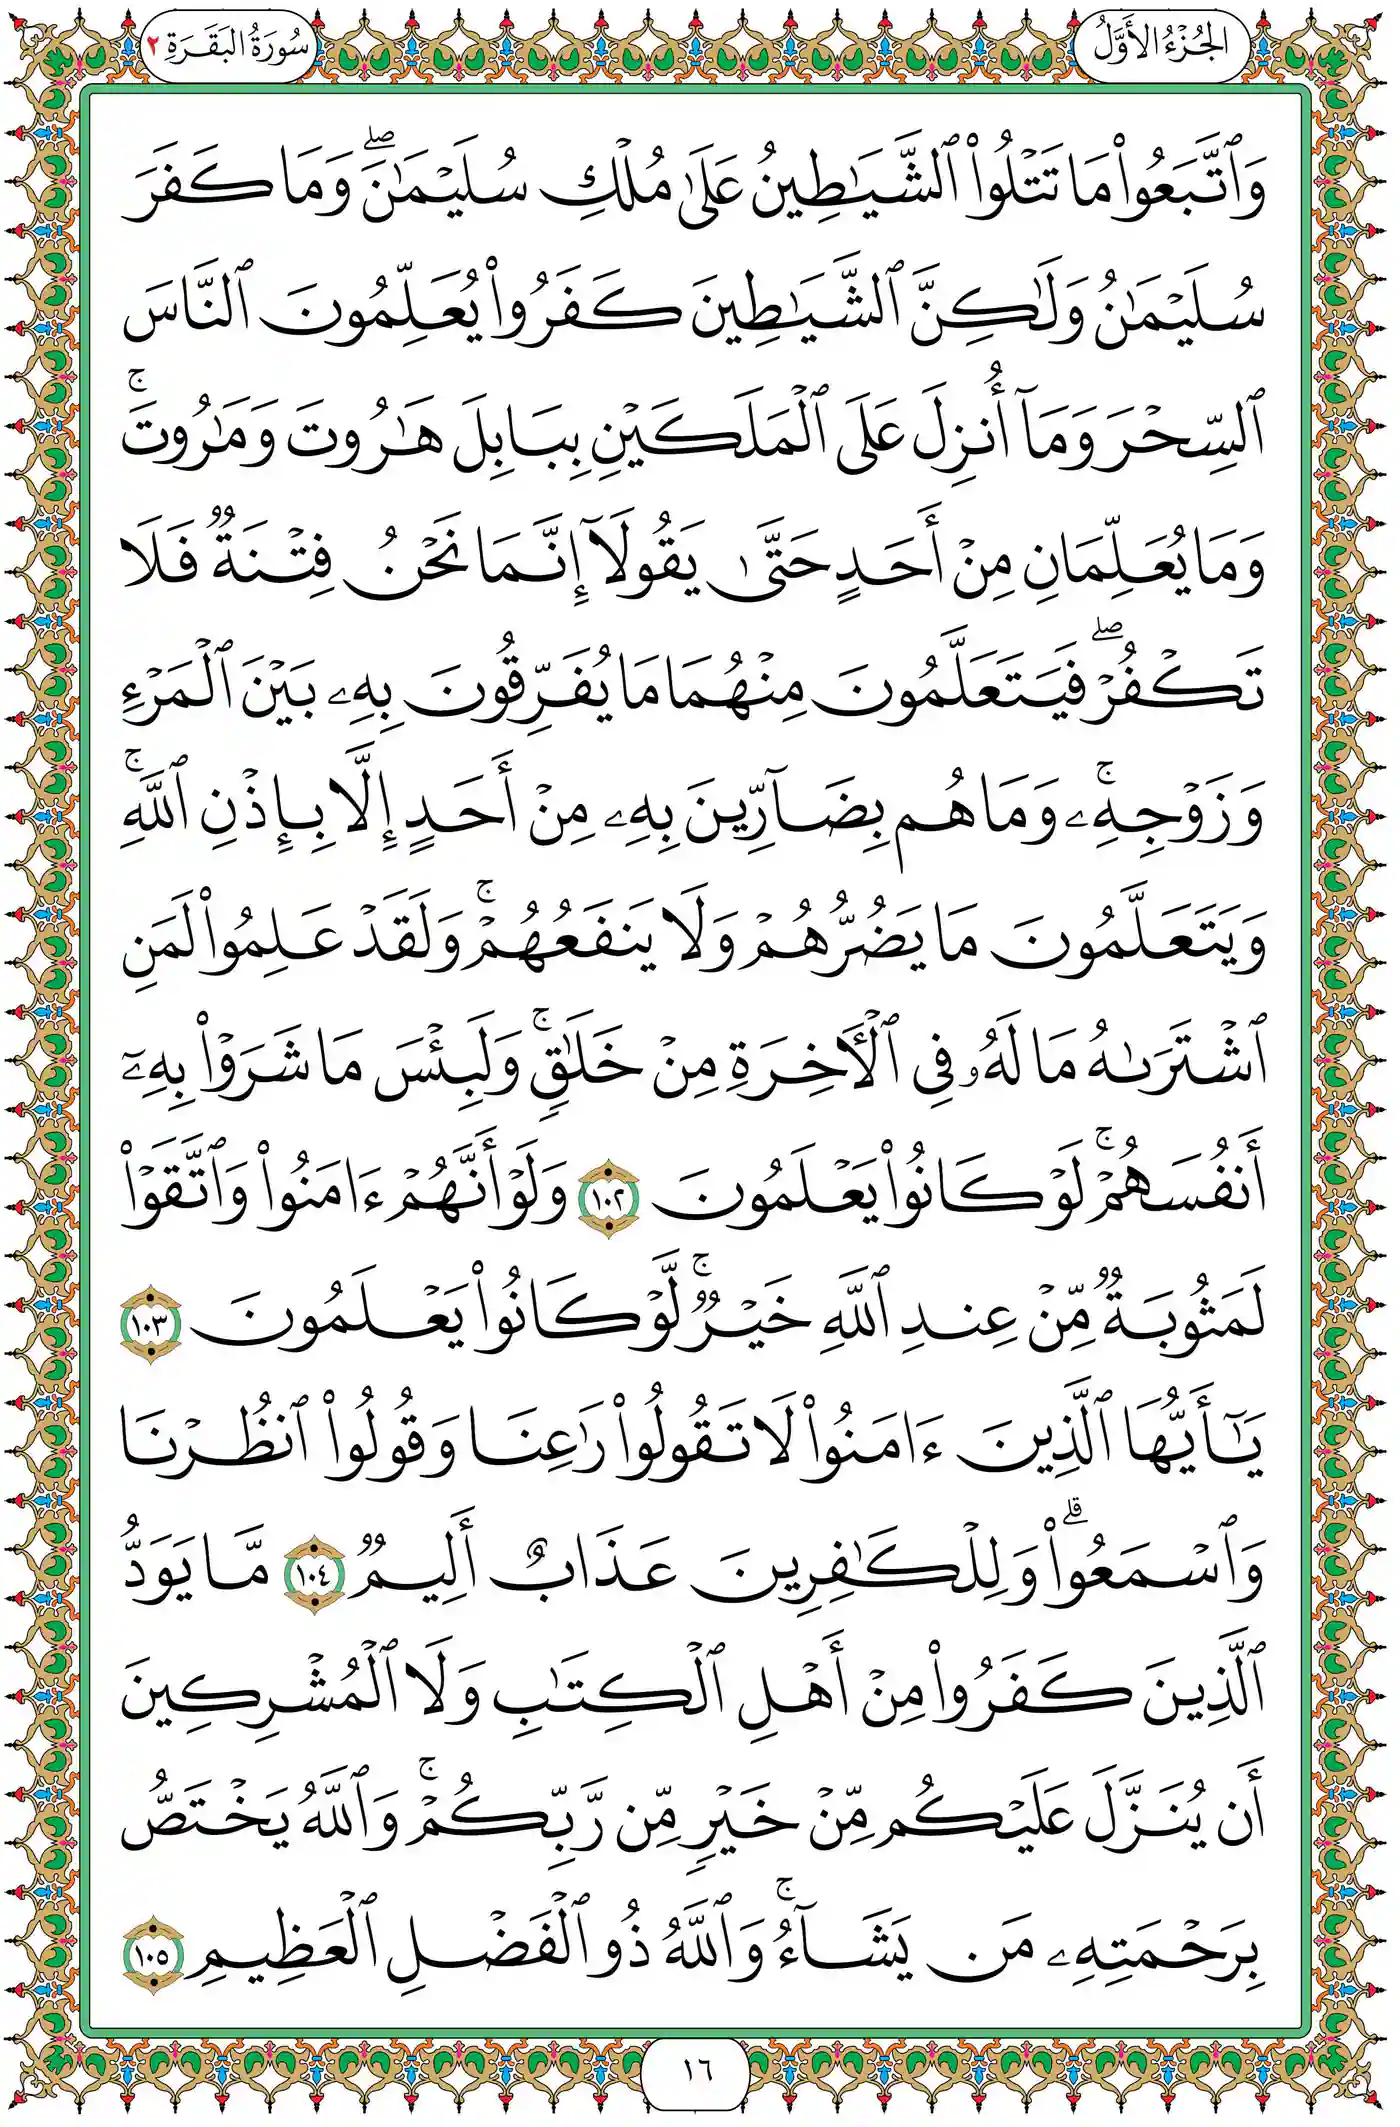 الجُزْءُ الأَوَّلُ
سُورَةُ البَقَرَةِ ٢
وَٱتَّبَعُوا۟ مَا تَتْلُوا۟ ٱلشَّيَـٰطِينُ عَلَىٰ مُلْكِ سُلَيْمَـٰنَ ۖ وَمَا كَفَرَ
سُلَيْمَـٰنُ وَلَـٰكِنَّ ٱلشَّيَـٰطِينَ كَفَرُوا۟ يُعَلِّمُونَ ٱلنَّاسَ
ٱلسِّحْرَ وَمَآ أُنزِلَ عَلَى ٱلْمَلَكَيْنِ بِبَابِلَ هَـٰرُوتَ وَمَـٰرُوتَ ۚ
وَمَا يُعَلِّمَانِ مِنْ أَحَدٍ حَتَّىٰ يَقُولَآ إِنَّمَا نَحْنُ فِتْنَةٌ فَلَا
تَكْفُرْ ۖ فَيَتَعَلَّمُونَ مِنْهُمَا مَا يُفَرِّقُونَ بِهِۦ بَيْنَ ٱلْمَرْءِ
وَزَوْجِهِۦ ۚ وَمَا هُم بِضَآرِّينَ بِهِۦ مِنْ أَحَدٍ إِلَّا بِإِذْنِ ٱللَّهِ ۚ
وَيَتَعَلَّمُونَ مَا يَضُرُّهُمْ وَلَا يَنفَعُهُمْ ۚ وَلَقَدْ عَلِمُوا۟ لَمَنِ
ٱشْتَرَىٰهُ مَا لَهُۥ فِى ٱلْـَٔاخِرَةِ مِنْ خَلَـٰقٍ ۚ وَلَبِئْسَ مَا شَرَوْا۟ بِهِۦٓ
أَنفُسَهُمْ ۚ لَوْ كَانُوا۟ يَعْلَمُونَ ١٠٢ وَلَوْ أَنَّهُمْ ءَامَنُوا۟ وَٱتَّقَوْا۟
لَمَثُوبَةٌ مِّنْ عِندِ ٱللَّهِ خَيْرٌ ۚ لَّوْ كَانُوا۟ يَعْلَمُونَ ١٠٣
يَـٰٓأَيُّهَا ٱلَّذِينَ ءَامَنُوا۟ لَا تَقُولُوا۟ رَٰعِنَا وَقُولُوا۟ ٱنظُرْنَا
وَٱسْمَعُوا۟ ۗ وَلِلْكَـٰفِرِينَ عَذَابٌ أَلِيمٌ ١٠٤ مَّا يَوَدُّ
ٱلَّذِينَ كَفَرُوا۟ مِنْ أَهْلِ ٱلْكِتَـٰبِ وَلَا ٱلْمُشْرِكِينَ
أَن يُنَزَّلَ عَلَيْكُم مِّنْ خَيْرٍ مِّن رَّبِّكُمْ ۚ وَٱللَّهُ يَخْتَصُّ
بِرَحْمَتِهِۦ مَن يَشَآءُ ۚ وَٱللَّهُ ذُو ٱلْفَضْلِ ٱلْعَظِيمِ ١٠٥
١٦